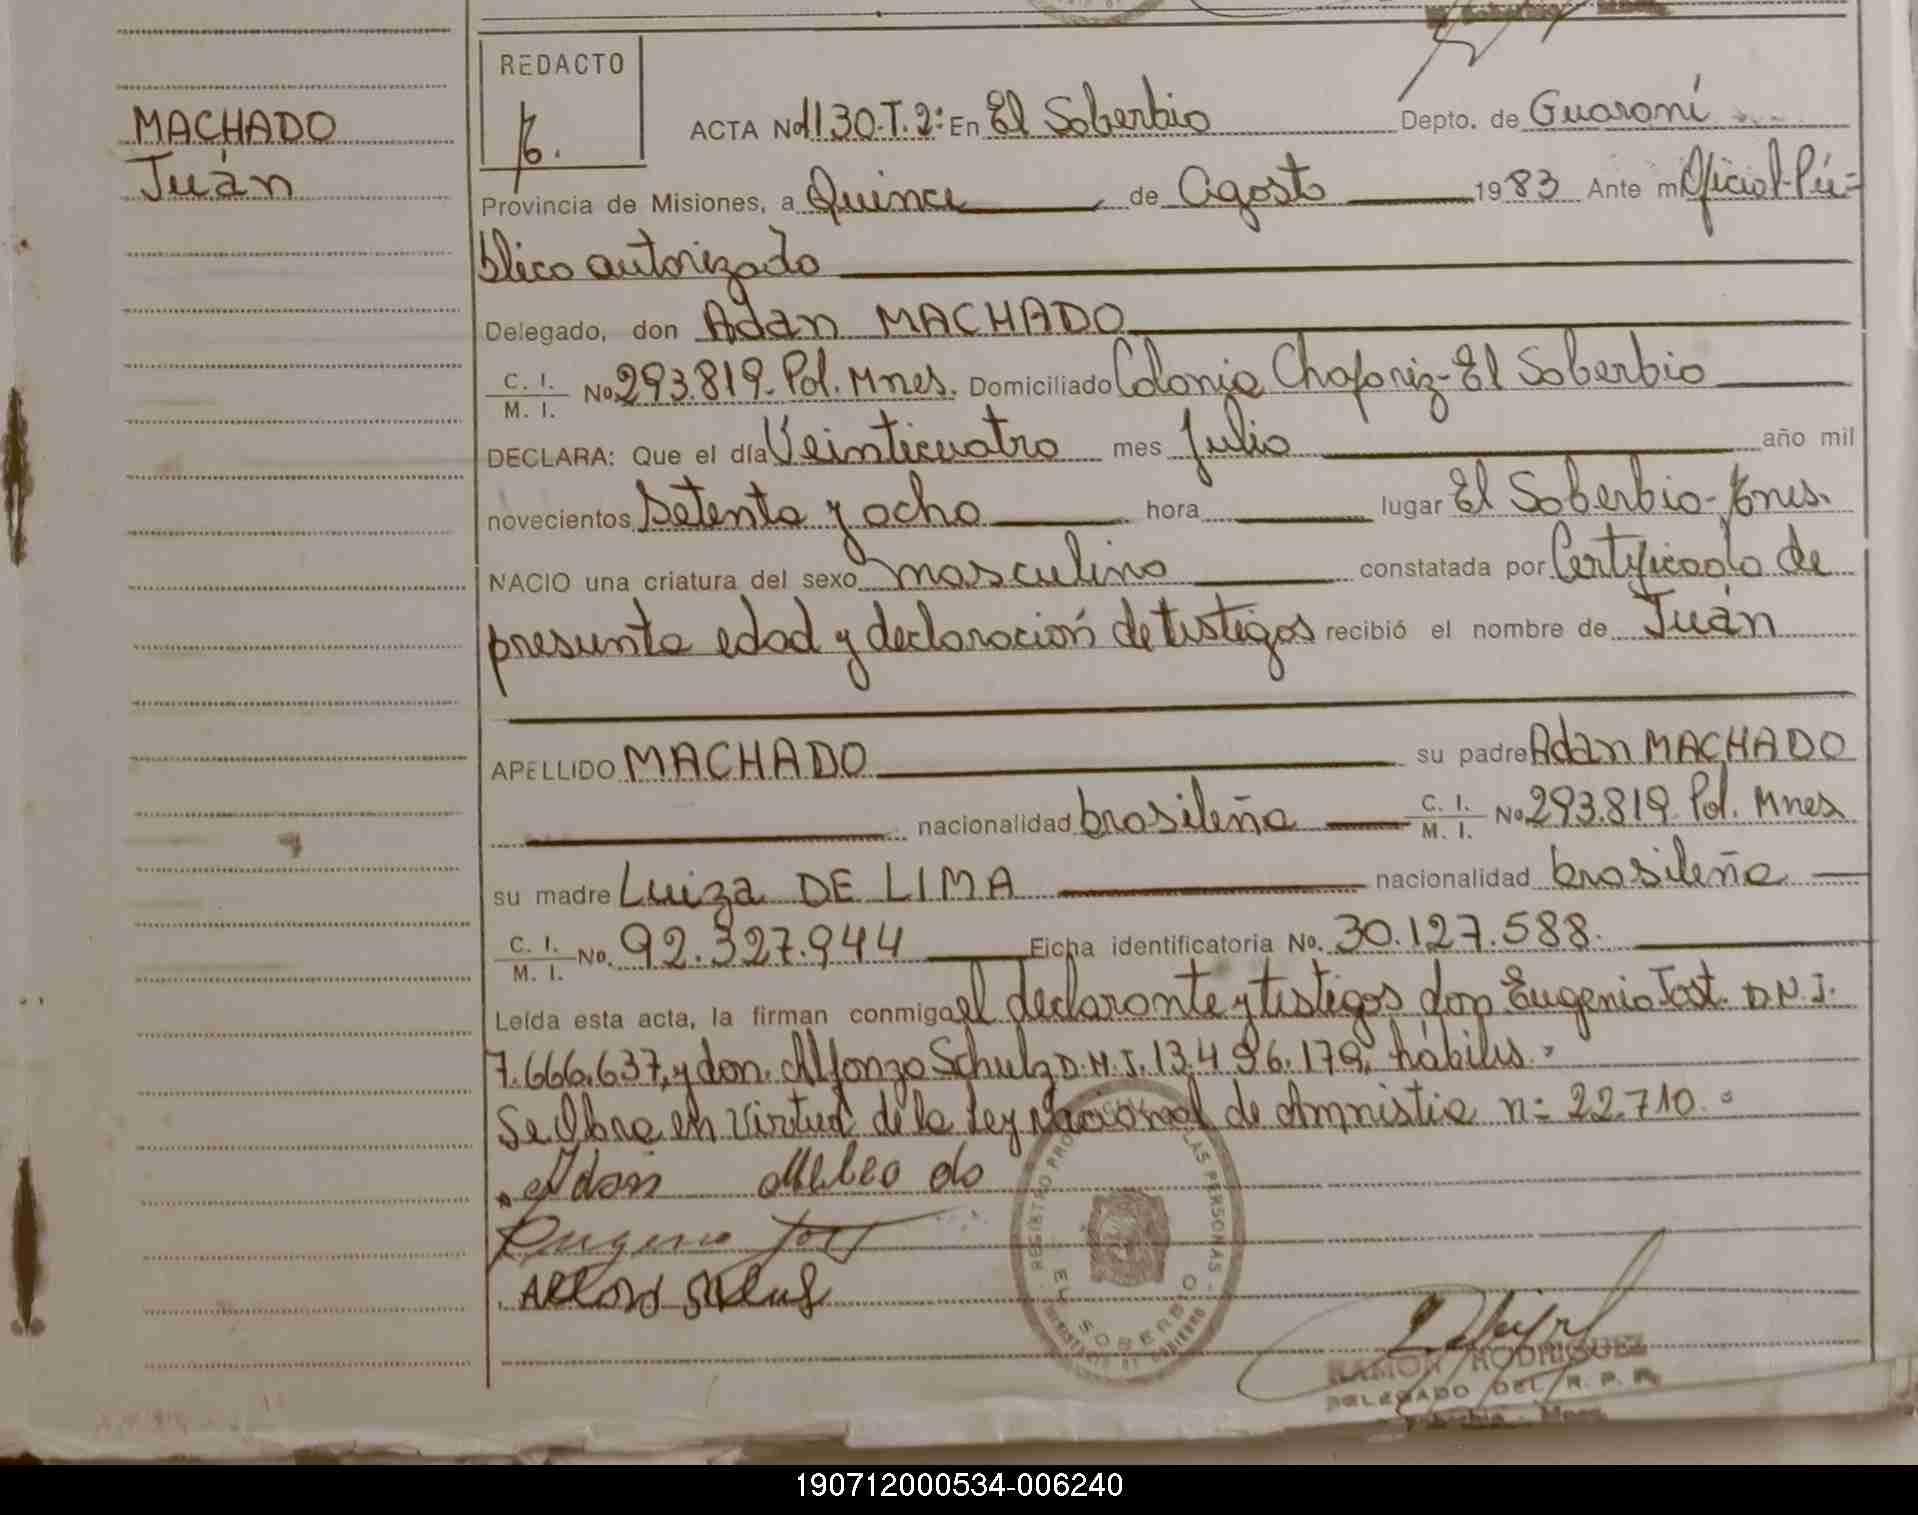 MACHADO
Juán
REDACTO
ACTA No 1130-T.2: En El Soberbio Depto. de Guaraní
Provincia de Misiones, a Quince de Agosto 1983 Ante mí Oficial Pú=
blico autorizado
Delegado, don Adan MACHADO
C. I. / M. I. No 293.819- Pol. Mnes. Domiciliado Colonia Chafariz- El Soberbio
DECLARA: Que el día Veinticuatro mes Julio año mil
novecientos Setenta y ocho hora lugar El Soberbio- Mnes.
NACIO una criatura del sexo masculino constatada por Certificado de
presunta edad y declaración de testigos recibió el nombre de Juán
APELLIDO MACHADO su padre Adan MACHADO
nacionalidad brasileña C. I. / M. I. No 293.819 Pol. Mnes
su madre Luiza DE LIMA nacionalidad brasileña
C. I. / M. I. No. 92.327.944 Ficha identificatoria No. 30.127.588.
Leída esta acta, la firman conmigo el declarante y testigos don Eugenio Tost. D.N.I.
7.666.637, y don. Alfonzo Schulz D.N.I. 13.496.179, hábiles.
Se labra en virtud de la Ley Nacional de Amnistia n= 22.710.
Adan
Eugenio Tost
REGISTRO LAS PERSONAS
EL SOBERBIO
RAMON RODRIGUEZ
DELEGADO DEL R. P. P.
190712000534-006240